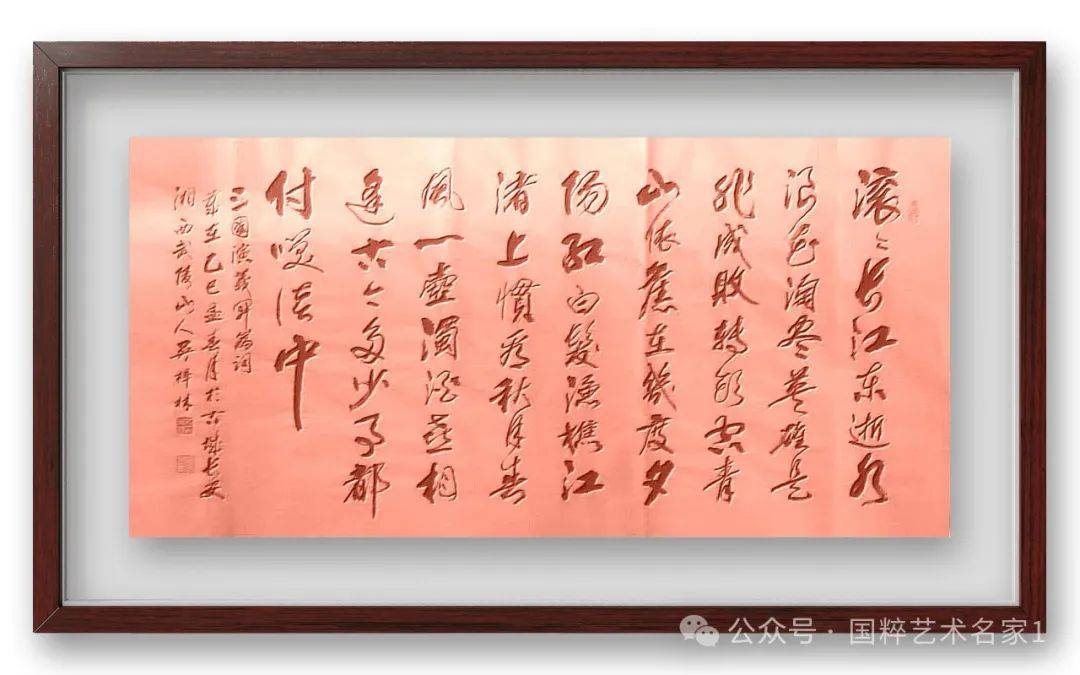 滚〻长江东逝水
浪花淘尽英雄是
非成败转头空青
山依舊在幾度夕
阳红白髮渔樵江
渚上慣看秋月春
風一壺濁酒喜相
逢古今多少事都
付笑谈中
三國演義开篇词
歲在乙巳孟春月於古城长安
湘西武陵山人吴梓林
公众号 · 国粹艺术名家1